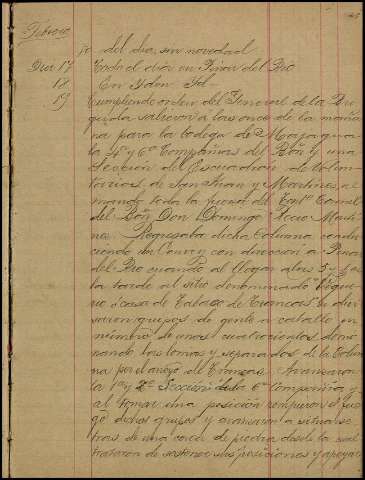 Febrero
jo del dia, sin novedad
Dia 17 Todo el dia en Pinar del Rio
18 En Ydem Yd.
19 Cumpliendo orden del General de la Bri
gada salieron a las once de la maña
na para la bodega de
la 4ª y 6ª Compañias del Bón y una
Sección del Escuadron de Volun
tarios de San Juan y Martinez, al
mando toda la fuerza del Tente Coronel
del Bón Don Domingo Martí
nez. Regresaba dicha Columna condu
ciendo un Convoy con direccion a Pinar
del Rio cuando al llegar a las 3 y ½ de
la tarde al sitio denominado
ó casa de Tabaco de se divi
saron grupos de gente a caballo en
número de unos cuatrocientos domi
nando las lomas y separados de la Colum
na por el arroyo del Avanzaron
la 1ª y 2ª Sección de la 6ª Compañia y
al tomar una posición rompieron el fue
go dichos grupos y avanzaron a situarse
tras de una cerca de piedra desde la cual
trataron de sostener sus posiciones y apoyar